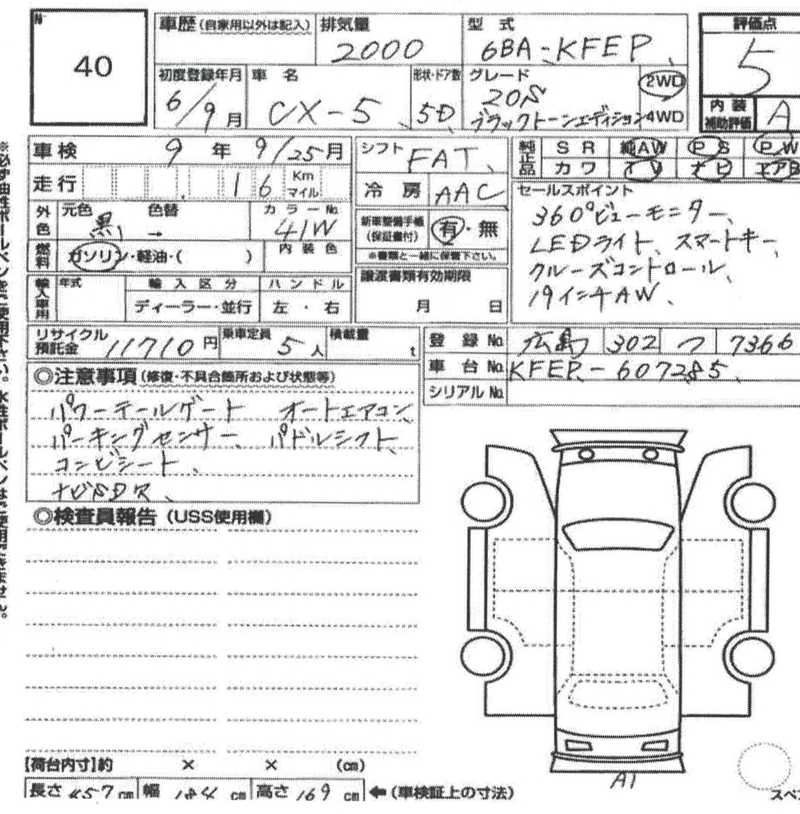 №
40
車歴(自家用以外は記入)
排気量
2000
型式
6BA-KFEP
評価点
5
初度登録年月
6/9月
車名
CX-5
形状・ドア数
5D
グレード
20S
ブラックトーンエディション
2WD
4WD
内装
補助評価
A
車検 9年9/25月
シフト
FAT
純正品
SR 純AW PS PW
カワ TV ナビ エアB
走行 16 Km
マイル
冷房
AAC
セールスポイント
360°ビューモニター、
LEDライト、スマートキー、
クルーズコントロール、
19インチAW、
外色
元色 色替
黒 →
カラー№
41W
新車整備手帳
(保証書付)
有・無
※書類と一緒に保管下さい。
燃料
ガソリン・軽油・( )
内装色
譲渡書類有効期限
月 日
輸入車用
年式
輸入区分
ディーラー・並行
ハンドル
左・右
リサイクル
預託金
11710円
乗車定員
5人
積載量
t
登録№ 広島 302 つ 7366
車台№ KFEP-607285
シリアル№
◎注意事項(修復・不具合箇所および状態等)
パワーテールゲート オートエアコン、
パーキングセンサー、パドルシフト、
コンビシート、
ナビSDR、
◎検査員報告(USS使用欄)
A1
【荷台内寸】約 × × (cm)
長さ 457 cm 幅 184 cm 高さ 169 cm ←(車検証上の寸法)
スペ
※必ず油性ボールペンをご使用下さい。水性ボールペンはご使用できません。